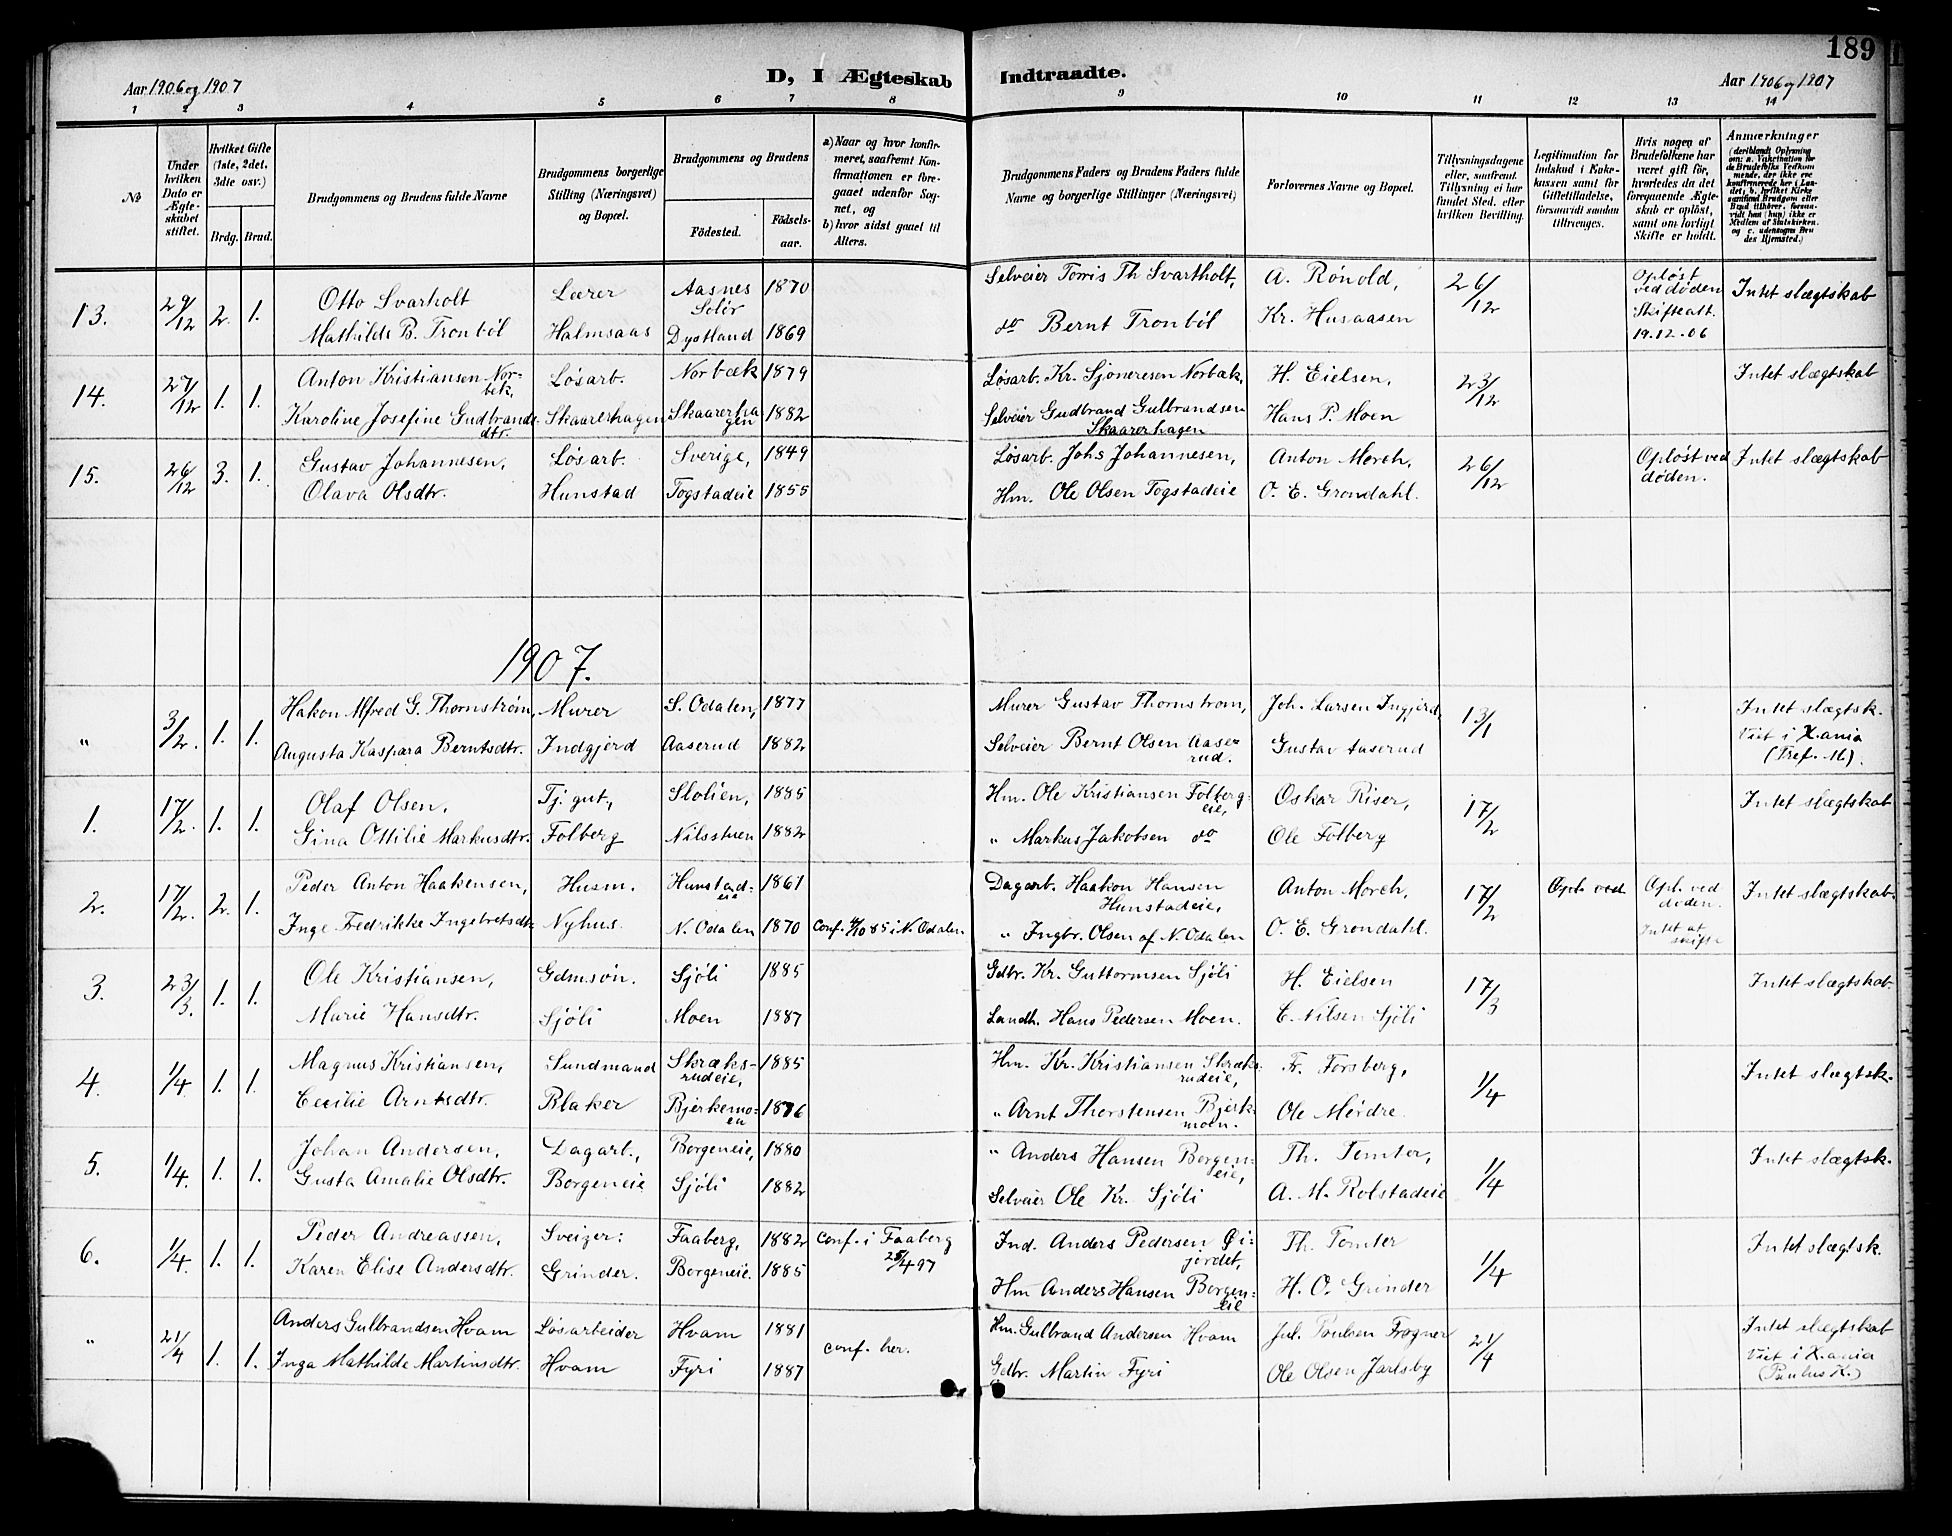 189
Aar 1906 og 1907
D, I Ægteskab Indtraadte.
Aar 1906 og 1907
1 2 3 4 5 6 7 8 9 10 11 12 13 14
No
Under hvilken Dato er Ægteskabet stiftet.
Hvilket Gifte (1ste, 2det, 3die osv.)
Brdg. Brud.
Brudgommens og Brudens fulde Navne
Brudgommens borgerlige Stilling (Næringsvei) og Bopæl.
Brudgommens og Brudens
Födested. Födselsaar.
a) Naar og hvor konfirmeret, saafremt Konfirmationen er foregaaet udenför Sognet, og
b) hvor sidst gaaet til Alters.
Brudgommens Faders og Brudens Faders fulde Navne og borgerlige Stillinger (Næringsvei)
Forlovernes Navne og Bopæl.
Tillysningsdagene eller, saafremt Tillysning ei har fundet Sted, efter hvilken Bevilling.
Legitimation for Indskud i Enkekassen samt för Giftetilladelse, forsaavidt saadan tiltrænges.
Hvis nogen af Brudefolkene har været gift før, hvorledes da det foregaaende Ægteskab er opløst, samt om lovligt Skifte er holdt.
Anmærkninger (deriblandt Oplysning om: a. Vakcination for de Brudefolks Vedkommende, der ikke ere konfirmerede her i Landet, b. hvilket Kirkesamfund Brudgom eller Brud tilhører, forsaavidt han (hun) ikke er Medlem af Statskirken, og c. udensogns Brudes Hjemsted.)
13. 29/12 2. 1. Otto Svarholt Lærer Aasnes Solør 1870 Selveier Torris Th Svartholt, A. Rönold, 26/12 Opløst ved døden Skifteatt. 19.12.06 Intet slægtskab
Mathilde B. Tronböl Halmsaas Dystland 1869 do Bernt Tronböl Kr. Husaasen
14. 27/12 1. 1. Anton Kristiansen Norbek, Løsarb. Norbæk 1879 Løsarb. Kr. Sjöneresen Norbæk, H. Eielsen, 23/12 Intet slægtskab
Karoline Josefine Gudbrandsdtr. Skaarerhagen Skaarerhagen 1882 Selveier Gudbrand Gulbrandsen Skaarerhagen Hans P. Moen
15. 26/12 3. 1. Gustav Johannesen, Løsarb. Sverige, 1849 Løsarb. Johs Johannesen, Anton Morch, 26/12 Opløst ved døden. Intet slægtskab
Olava Olsdtr. Hunstad Togstadeie 1855 Hm. Ole Olsen Togstadeie O. E. Grondahl.
1907.
" 3/2. 1. 1. Hakon Alfred G. Thornstrøm, Murer S. Odalen, 1877 Murer Gustav Thornstrom, Joh. Larsen Ingjerd, 13/1 Intet slægtsk. Viet i X.ania (Tref. M).
Augusta Kaspara Berntsdtr. Indgjerd Aaserud 1882 Selveier Bernt Olsen Aaserud. Gustav Aaserud
1. 17/2. 1. 1. Olaf Olsen, Tj. gut, Stolien, 1885 Hm. Ole Kristiansen Folbergeie, Oskar Riser, 17/2 Intet slægtskab
Gina Ottilie Markusdtr. Folberg Nilsstuen 1882 " Markus Jakobsen do Ole Folberg
2. 17/2. 2. 1. Peder Anton Haakensen, Husm. Hunstadeie 1861 Dagarb. Haakon Hansen Hunstadeie, Anton Morch, 17/2 Opl. ved Opl. ved døden. Intet at skifte Intet slægtskab.
Inge Fredrikke Ingebretsdtr. Nyhus. N. Odalen 1870 Conf. 4/10 85 i N. Odalen " Ingbr. Olsen af N. Odalen O. E. Grondahl.
3. 23/3. 1. 1. Ole Kristiansen, Gdmsøn. Sjöli 1885 Gdbr. Kr. Guttormsen Sjöli H. Eielsen 17/3 Intet slægtskab.
Marie Hansdtr. Sjöli Moen 1887 Landh. Hans Pedersen Moen. E. Nilsen Sjöli
4. 1/4. 1. 1. Magnus Kristiansen, Sundmand Skræksrudeie, 1885 Hm. Kr. Kristiansen Skræksrudeie, Fr. Forsberg, 1/4 Intet slægtsk.
Cecilie Arntsdtr. Blaker Bjerkemoen 1876 " Arnt Thorstensen Bjerkmoen. Ole Mérdre.
5. 1/4. 1. 1. Johan Andersen, Dagarb., Borgeneie, 1880 " Anders Hansen Borgeneie, Th. Tomter, 1/4 Intet slægtsk.
Gusta Amalie Olsdtr. Borgeneie Sjöli 1882 Selveier Ole Kr. Sjöli A. M. Rolstadeie
6. 1/4. 1. 1. Peder Andreassen, Sveizer: Faaberg, 1882 Conf. i Faaberg 25/4 97 Ind. Anders Pedersen Øijordet, Th. Tomter 1/4 Intet slægtsk.
Karen Elise Andersdtr. Grinder. Borgeneie. 1885 Hm Anders Hansen Borgeneie H. O. Grinder
" 21/4 1. 1. Anders Gulbrandsen Hvam Løsarbeider Hvam 1881 conf. her. Hm. Gulbrand Andersen Hvam Jul. Paulsen Frogner 21/4 Intet slægtskab Viet i X.ania (Paulus K.)
Inga Mathilde Martinsdtr. Hvam Fyri 1887 Gdbr. Martin Fyri Ole Olsen Jarlsby